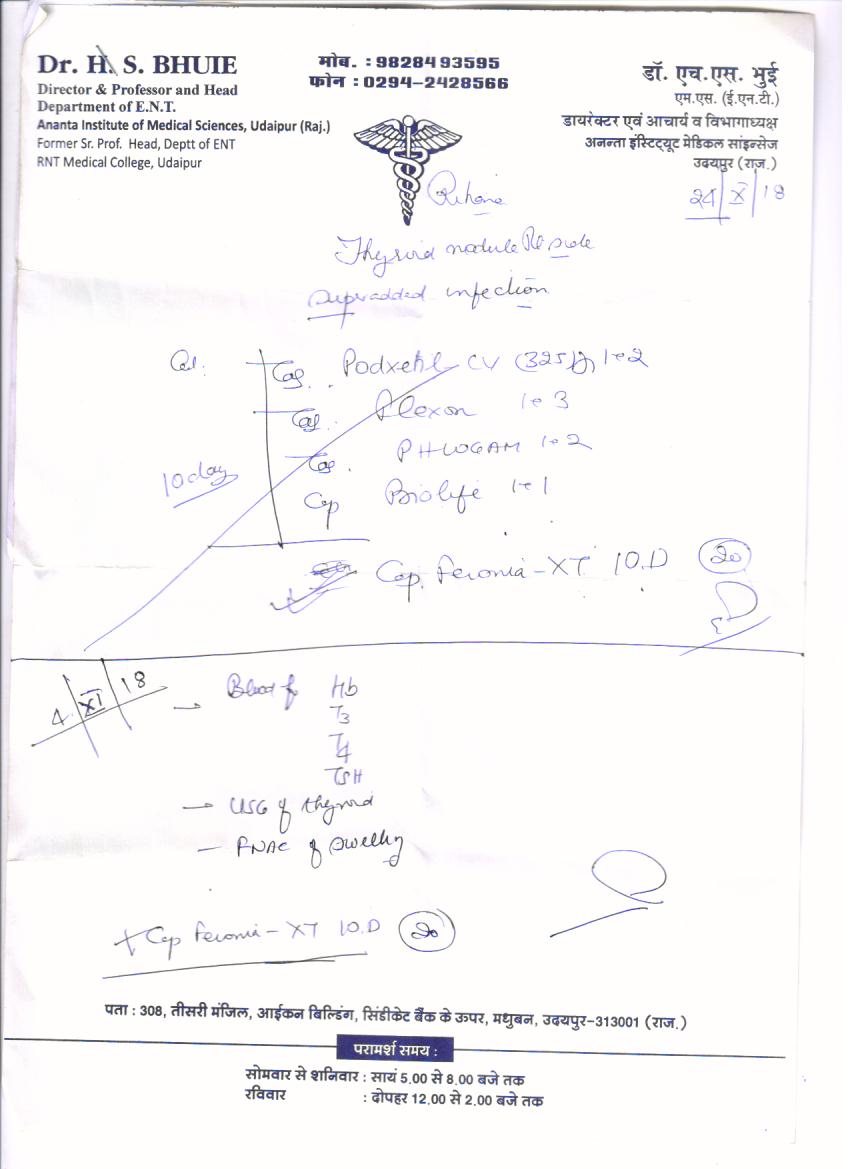 Dr. H. S. BHUIE
Director & Professor and Head
Department of E.N.T.
Ananta Institute of Medical Sciences, Udaipur (Raj.)
Former Sr. Prof. Head, Deptt of ENT
RNT Medical College, Udaipur
मोब. : 9828493595
फोन : 0294-2428566
डॉ. एच.एस. भुई
एम.एस. (ई.एन.टी.)
डायरेक्टर एवं आचार्य व विभागाध्यक्ष
अनन्ता इंस्टिट्यूट मेडिकल सांइन्सेज
उदयपुर (राज.)
24/X/18
Thyroid nodule
supradded infection
CV (325) 1-2
1-3
PHLOGAM 1-2
Cap Biolife 1-1
10 day
Cap. Feronia-XT 1O.D 20
4/XI/18
→ Blood for Hb
T3
T4
TSH
→ USG of thyroid
- FNAC of swelling
+ Cap Feronia-XT 1O.D 20
पता : 308, तीसरी मंजिल, आईकन बिल्डिंग, सिंडीकेट बैंक के ऊपर, मधुबन, उदयपुर-313001 (राज.)
परामर्श समय :
सोमवार से शनिवार : सायं 5.00 से 8.00 बजे तक
रविवार : दोपहर 12.00 से 2.00 बजे तक